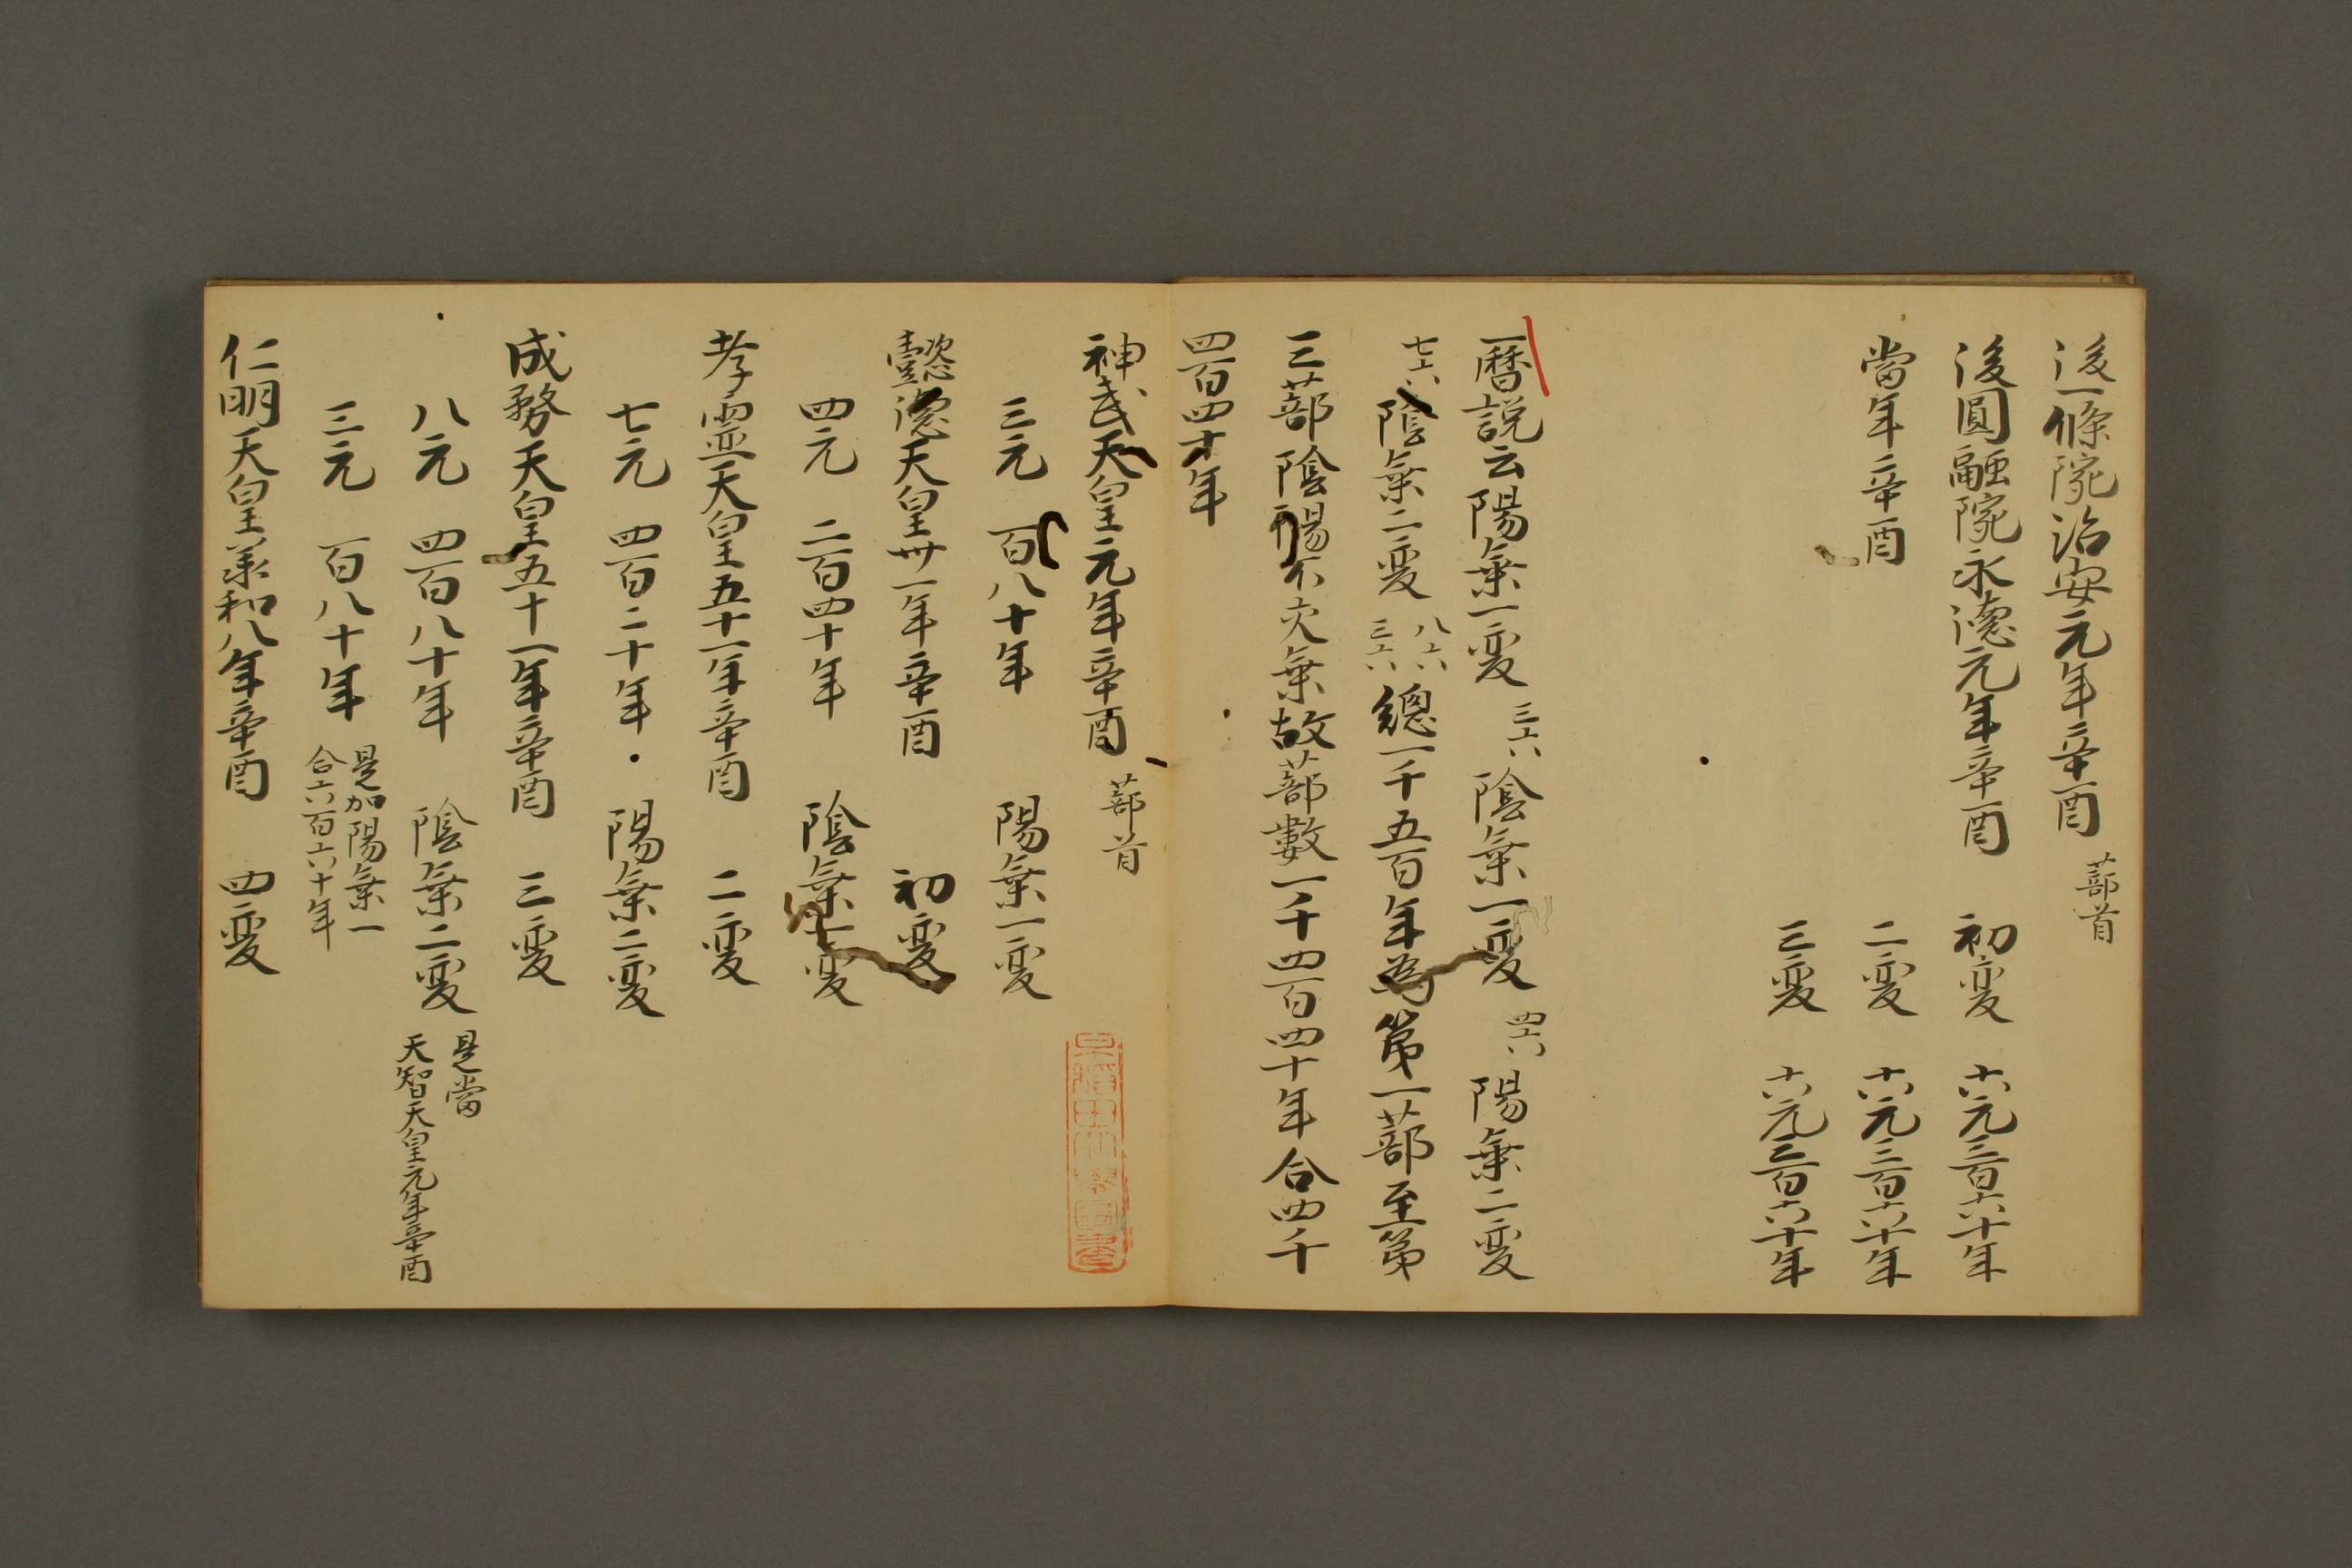 後一條院治安元年辛酉 蔀首
後圓融院永德元年辛酉 初變 十六元三百六十年
當年辛酉 二變 十六元三百六十年
三變 十六元三百六十年
一曆説云陽氣一變 三六 陰氣一變 四六 陽氣二變
七六 陰氣二變 八六 三六 總一千五百年為第一蔀至第
三蔀陰陽不定氣故蔀數一千四百四十年合四千
四百四十年
神武天皇元年辛酉 蔀首
三元 百八十年 陽氣一變
懿德天皇卅一年辛酉 初變
四元 二百四十年 陰氣一變
孝霊天皇五十一年辛酉 二變
七元 四百二十年 陽氣二變
成務天皇五十一年辛酉 三變
八元 四百八十年 陰氣二變 是當
天智天皇元年辛酉
三元 百八十年 是加陽氣一
合六百六十年
仁明天皇承和八年辛酉 四變